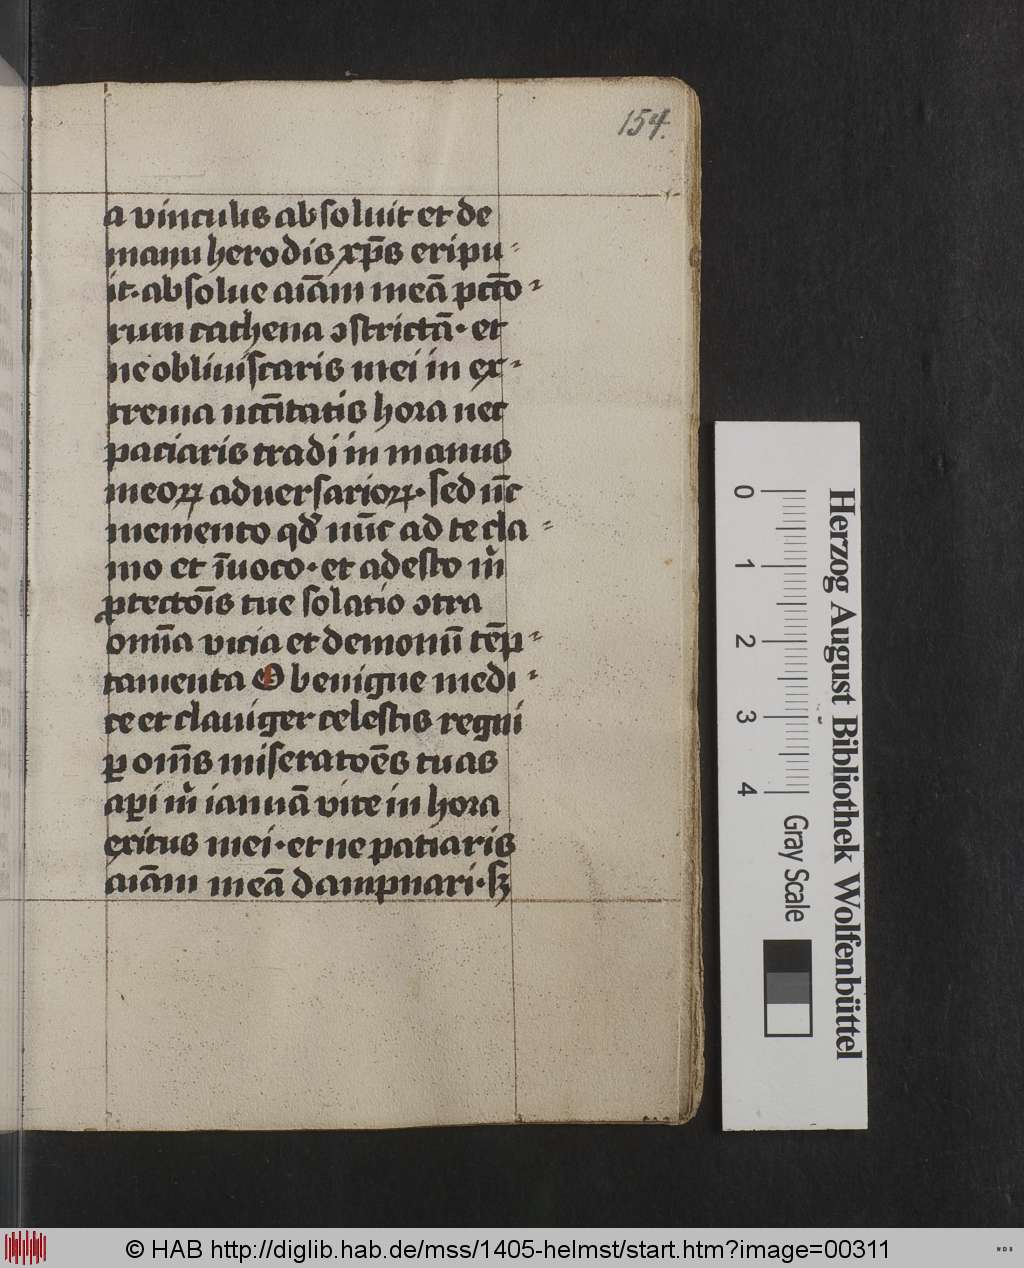 154.
a vinculis absoluit et de
manu herodis xp̄s eripu-
it. absolue aīam meā pctō-
rum cathena ↄstrictā. et
ne obliuiscaris mei in ex-
trema nccītatis hora nec
paciaris tradi in manus
meoꝝ aduersarioꝝ. sed nūc
memento qd̄ nūc ad te cla-
mo et īuoco. et adesto m̄
ꝓtectoīs tue solatio ↄtra
omīa vicia et demonū tēp-
tamenta O benigne medi-
ce et clauiger celestis regni
ꝑ om̄s miseratōēs tuas
aꝑi m̄ ianuā vite in hora
exitus mei. et ne patiaris
aīam meā dampnari. sꝫ
0 1 2 3 4
Gray Scale
Herzog August Bibliothek Wolfenbüttel
© HAB http://diglib.hab.de/mss/1405-helmst/start.htm?image=00311